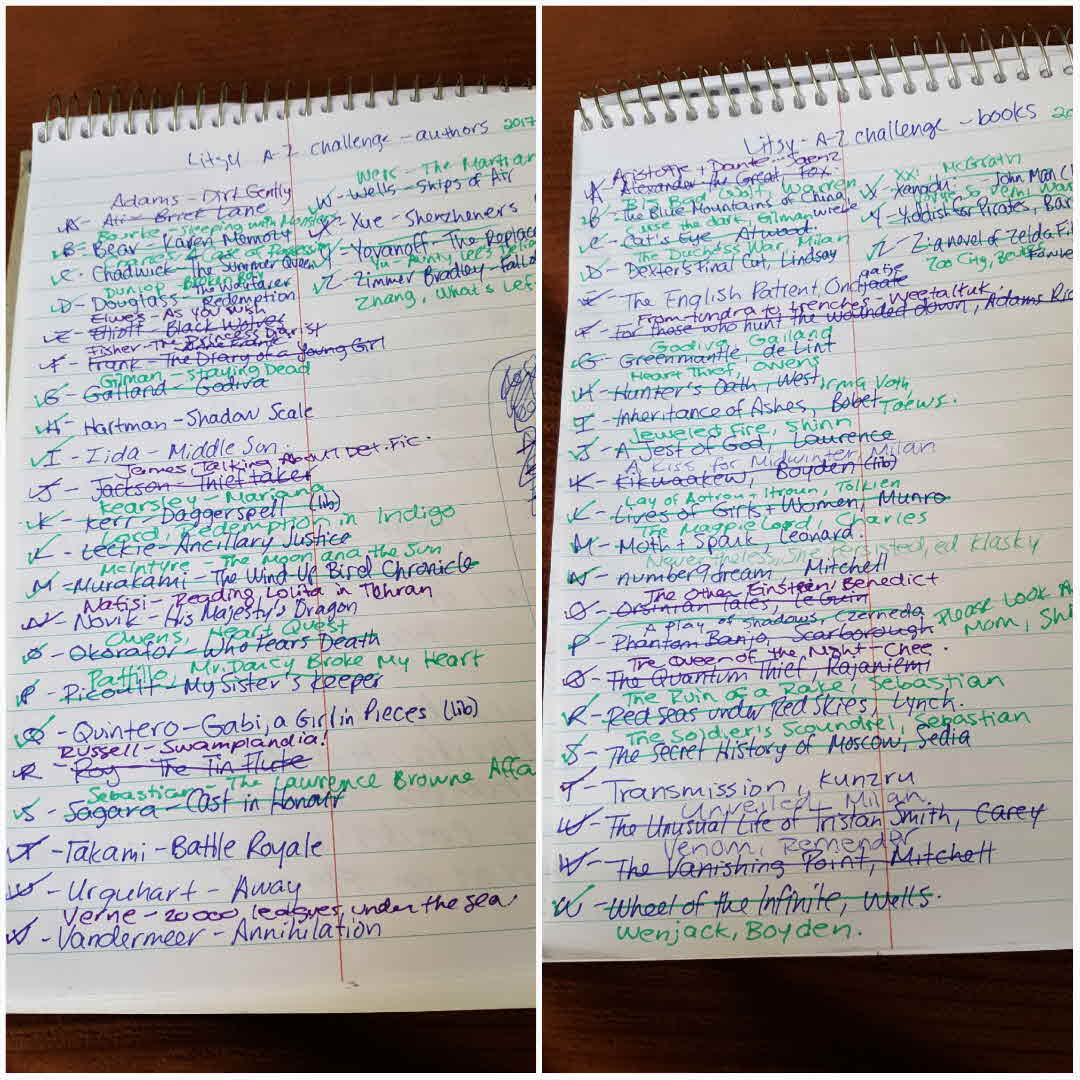 Litsy A-Z challenge - authors 2017
Adams - Dirk Gently
A - Ali - Brick Lane
Bourke - Sleeping with Monsters
B - Bear - Karen Memory
C - Chadwick - The Summer Queen
Dunlop - Broken Boy
D - Douglass - The Wayfarer Redemption
Elwes - As you wish
E - Elliott - Black Wolves
Fisher - The Princess Diarist
F - Frank - The Diary of a Young Girl
Gilman - Staying Dead
G - Galland - Godiva
H - Hartman - Shadow Scale
I - Iida - Middle Son.
James, Talking About Det. Fic.
J - Jackson - Thief taker
Kearsley - Mariana
K - Kerr - Daggerspell (lib)
Lord, Redemption in Indigo
L - Leckie - Ancillary Justice
McIntyre - The Moon and the Sun
M - Murakami - The Wind Up Bird Chronicle
Nafisi - Reading Lolita in Tehran
N - Novik - His Majesty's Dragon
Owens, Heart Quest
O - Okorafor - Who Fears Death
Pattillo, Mr. Darcy Broke My Heart
P - Picoult - My Sister's Keeper
Q - Quintero - Gabi, a Girl in Pieces (lib)
Russell - Swamplandia!
R - Roy - The Tin Flute
Sebastian - The Lawrence Browne Affa
S - Sagara - Cast in Honour
T - Takami - Battle Royale
U - Urquhart - Away
Verne - 20000 leagues under the sea
V - Vandermeer - Annihilation
Weir - The Martian
W - Wells - Ships of Air
X - Xue - Shenzheners
Yu, Aunty Lee's
Y - Yovanoff - The Replace
Z - Zimmer Bradley - Fall of
Zhang, What's Lef
Litsy - A-Z challenge - books 20
Aristotle + Dante... Saenz
A - Alexander the Great, Fox
Big Bad Wolf, Warren
B - The Blue Mountains of China, Wiebe
Curse the Dark, Gilman
C - Cat's Eye, Atwood.
The Duchess War, Milan
D - Dexter's Final Cut, Lindsay
E - The English Patient, Ondaatje
From tundra to trenches - Weetaltuk.
F - For those who hunt the wounded down, Adams Ric
Godiva, Galland
G - Greenmantle, de Lint
Heart Thief, Owens
H - Hunter's Oath, West
Irma Voth, Toews.
I - Inheritance of Ashes, Bobet
Jeweled Fire, Shinn
J - A Jest of God, Laurence
A Kiss for Midwinter, Milan
K - Kikwaakew, Boyden (lib)
Lay of Aotrou + Itroun, Tolkien
L - Lives of Girls + Women, Munro
The Magpie Lord, Charles
M - Moth + Spark, Leonard.
Nevertheless, She Persisted, ed Klasky
N - number9dream Mitchell
The Other Einstein, Benedict
O - Orsinian Tales, LeGuin
A play of shadows, Czerneda
P - Phantom Banjo, Scarborough
Please Look A
Mom, Shi
The Queen of the Night - Chee.
Q - The Quantum Thief, Rajaniemi
The Ruin of a Rake, Sebastian
R - Red Seas under Red Skies, Lynch.
The Soldier's Scoundrel, Sebastian
S - The Secret History of Moscow, Sedia
T - Transmission, Kunzru
Unveiled, Milan.
U - The Unusual Life of Tristan Smith, Carey
Venom, Remender
V - The Vanishing Point, Mitchell
W - Wheel of the Infinite, Wells.
Wenjack, Boyden.
XXI McGrath
X - Xanadu. John Man
Y - Yiddish for Pirates, Bar
Z - Z: a novel of Zelda Fi
Zoo City, Beukes
Fowler